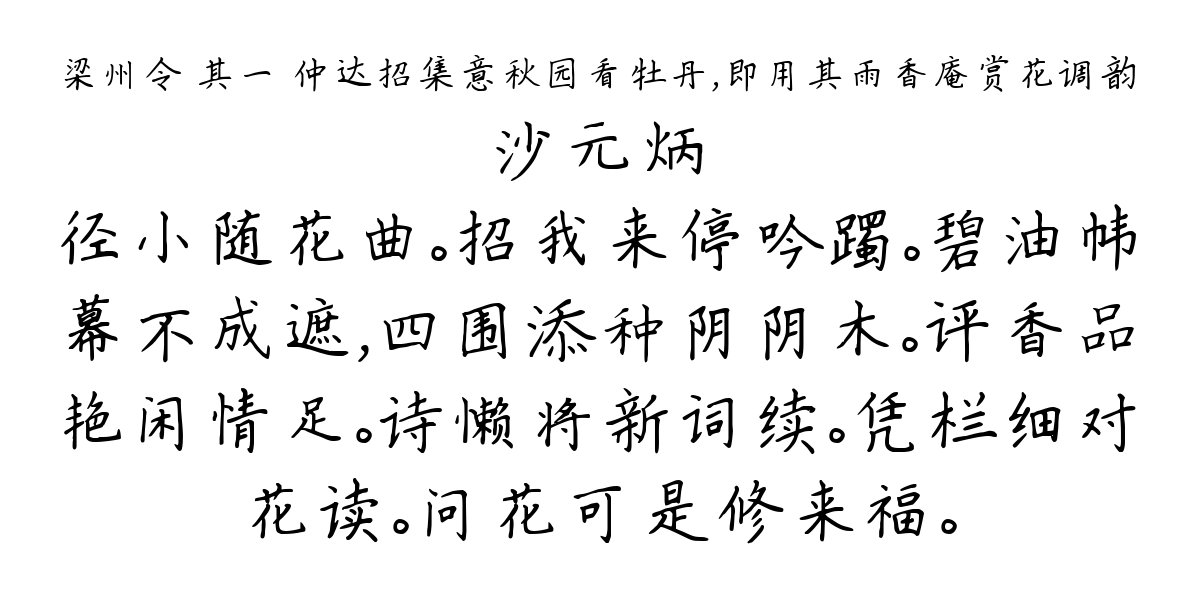 梁州令 其一 仲达招集意秋园看牡丹,即用其雨香庵赏花调韵
沙元炳
径小随花曲。招我来停吟躅。碧油帏
幕不成遮,四围添种阴阴木。评香品
艳闲情足。诗懒将新词续。凭栏细对
花读。问花可是修来福。